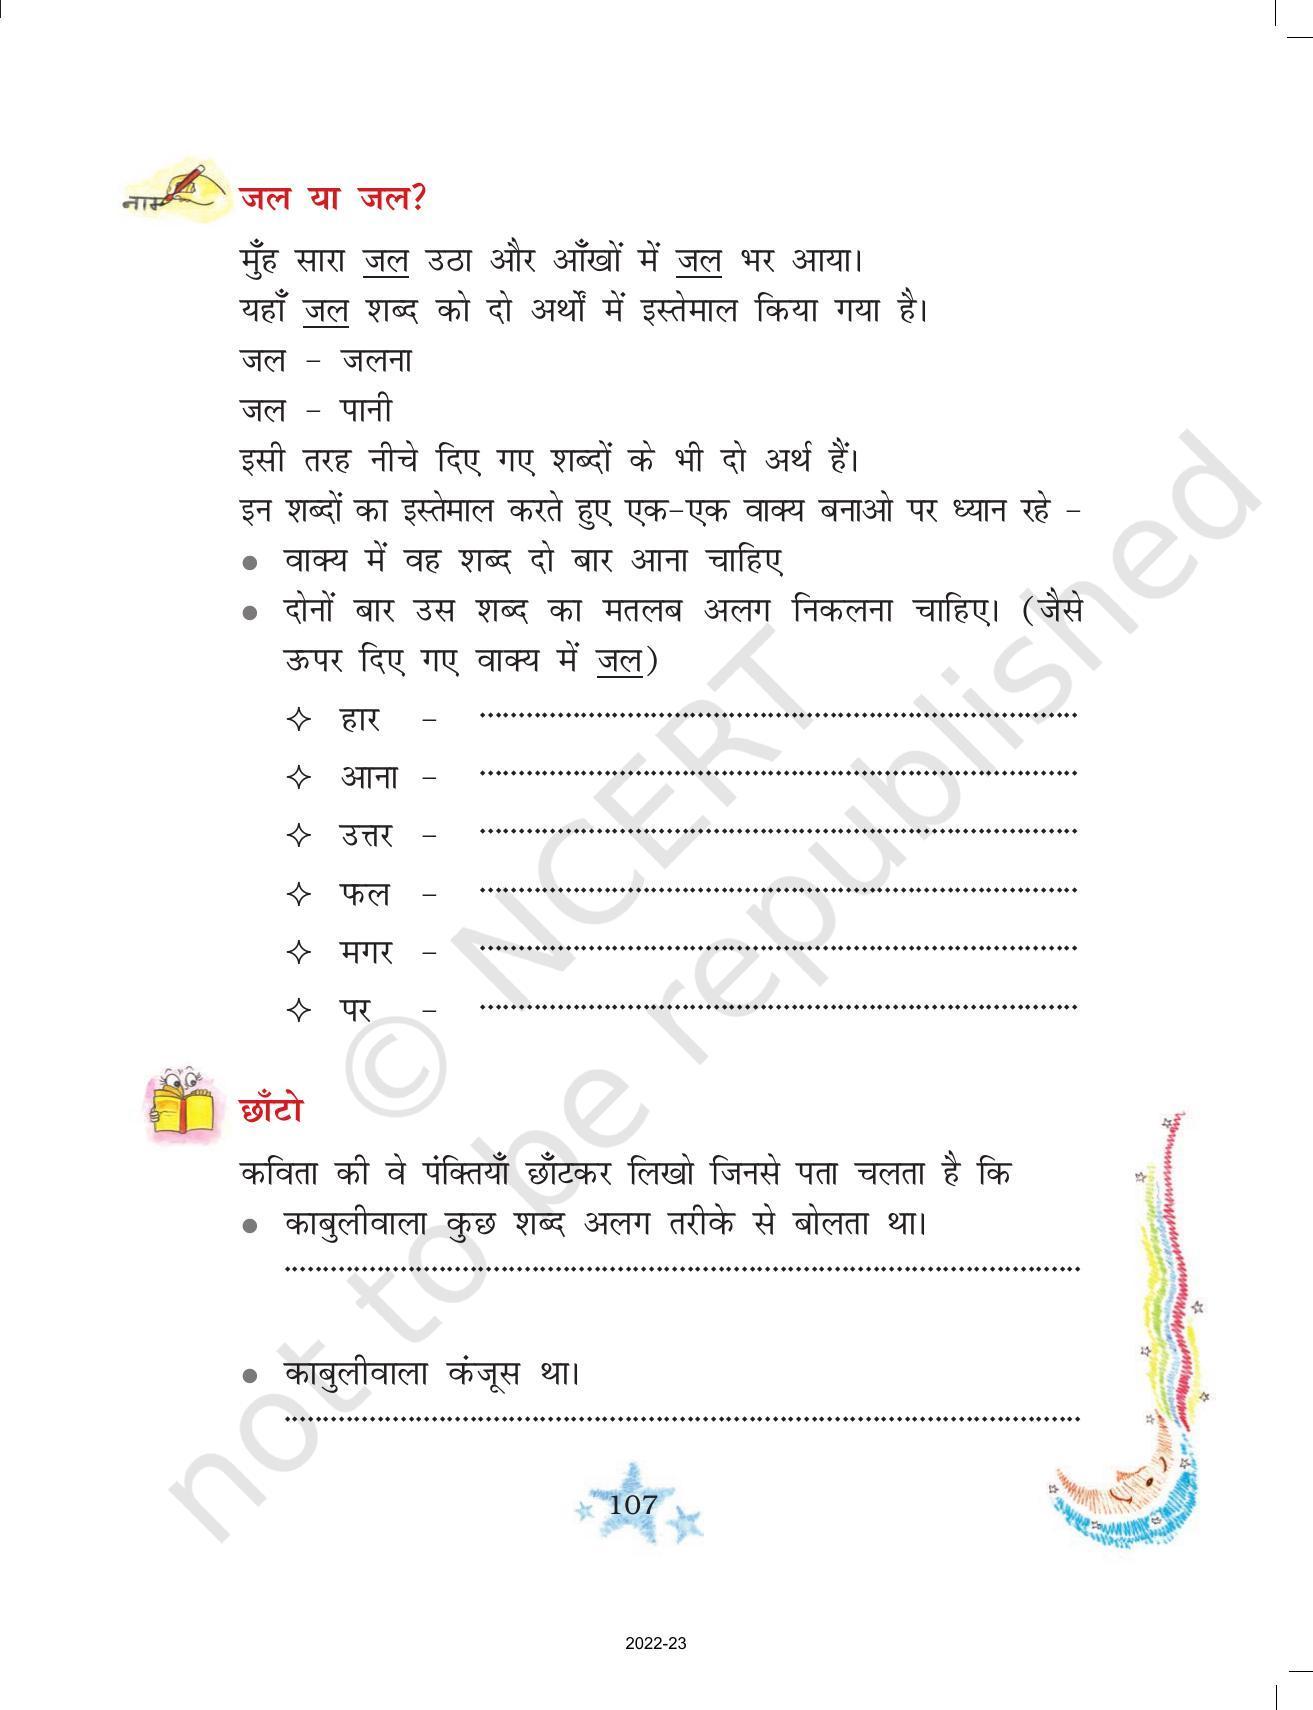 नाम
जल या जल?
मुँह सारा जल उठा और आँखों में जल भर आया।
यहाँ जल शब्द को दो अर्थों में इस्तेमाल किया गया है।
जल – जलना
जल – पानी
इसी तरह नीचे दिए गए शब्दों के भी दो अर्थ हैं।
इन शब्दों का इस्तेमाल करते हुए एक-एक वाक्य बनाओ पर ध्यान रहे –
● वाक्य में वह शब्द दो बार आना चाहिए
● दोनों बार उस शब्द का मतलब अलग निकलना चाहिए। (जैसे
ऊपर दिए गए वाक्य में जल)
✧ हार – ........................................................................
✧ आना – ........................................................................
✧ उत्तर – ........................................................................
✧ फल – ........................................................................
✧ मगर – ........................................................................
✧ पर – ........................................................................
छाँटो
कविता की वे पंक्तियाँ छाँटकर लिखो जिनसे पता चलता है कि
● काबुलीवाला कुछ शब्द अलग तरीके से बोलता था।
........................................................................
● काबुलीवाला कंजूस था।
........................................................................
107
2022-23
© NCERT
not to be republished